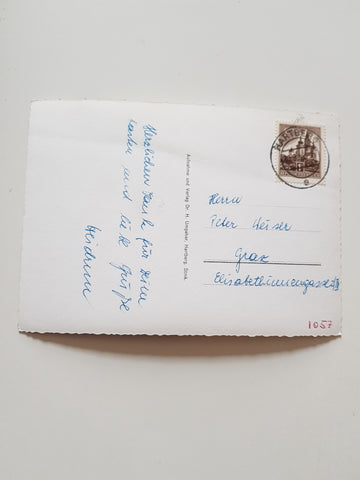 Herzlichen Dank für Deine
Karten und liebe Grüße
Heidrun
Aufnahme und Verlag Dr. H. Umgeher, Hartberg, Stmk.
HARTBERG
Herrn
Peter
Graz
Elisabethinnengasse
1057